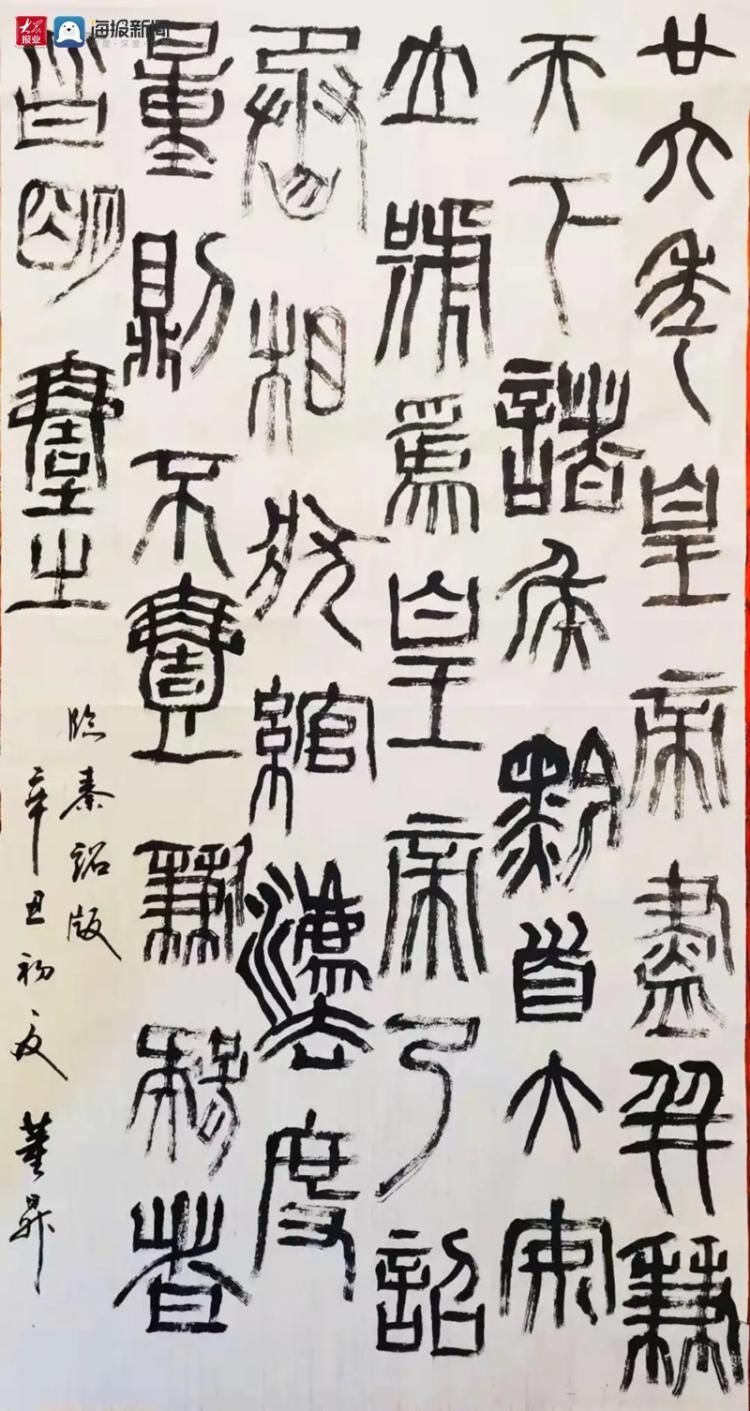 大众
报业
海报新闻
廿六年皇帝盡并兼
天下諸侯黔首大安
立號爲皇帝乃詔
丞相狀綰灋度
量則不壹歉疑者
皆明壹之
臨秦詔版
辛丑初夏 董昇